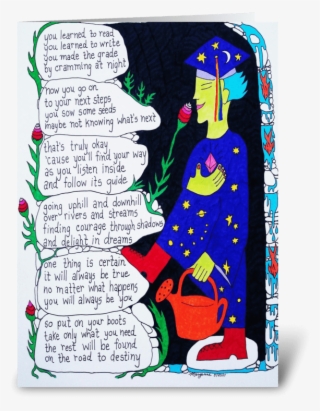 you learned to read
you learned to write
you made the grade
by cramming at night
now you go on
to your next steps
you sow some seeds
maybe not knowing what's next
that's truly okay
'cause you'll find your way
as you listen inside
and follow its guide
going uphill and downhill
over rivers and streams
finding courage through shadows
and delight in dreams
one thing is certain
it will always be true
no matter what happens
you will always be you
so put on your boots
take only what you need
the rest will be found
on the road to destiny